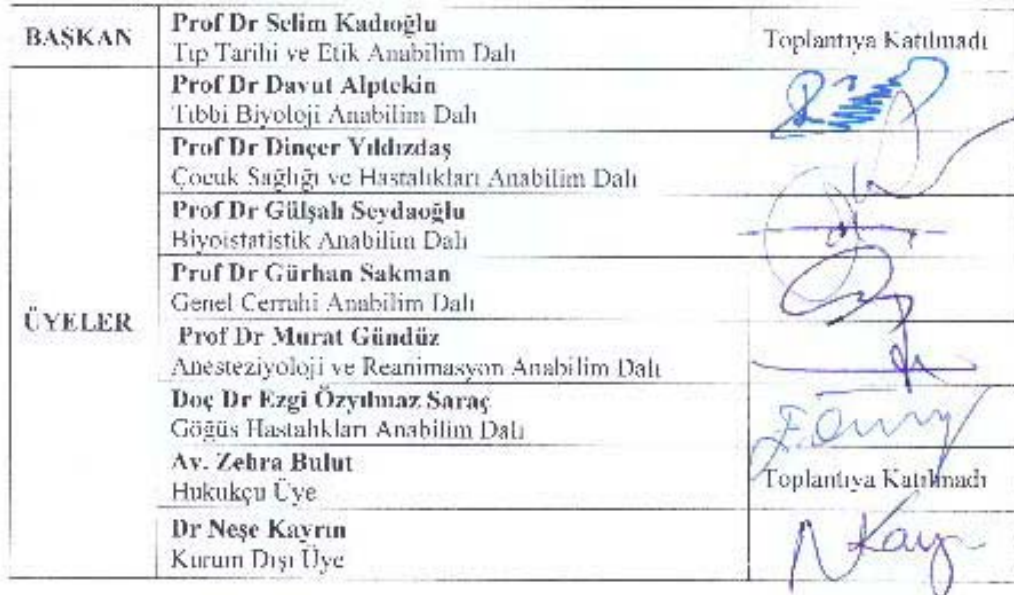 BAŞKAN
Prof Dr Selim Kadıoğlu
Tıp Tarihi ve Etik Anabilim Dalı
Toplantıya Katılmadı
ÜYELER
Prof Dr Davut Alptekin
Tıbbi Biyoloji Anabilim Dalı
Prof Dr Dinçer Yıldızdaş
Çocuk Sağlığı ve Hastalıkları Anabilim Dalı
Prof Dr Gülşah Seydaoğlu
Biyoistatistik Anabilim Dalı
Prof Dr Gürhan Sakman
Genel Cerrahi Anabilim Dalı
Prof Dr Murat Gündüz
Anesteziyoloji ve Reanimasyon Anabilim Dalı
Doç Dr Ezgi Özyılmaz Saraç
Göğüs Hastalıkları Anabilim Dalı
Av. Zehra Bulut
Hukukçu Üye
Toplantıya Katılmadı
Dr Neşe Kayrın
Kurum Dışı Üye